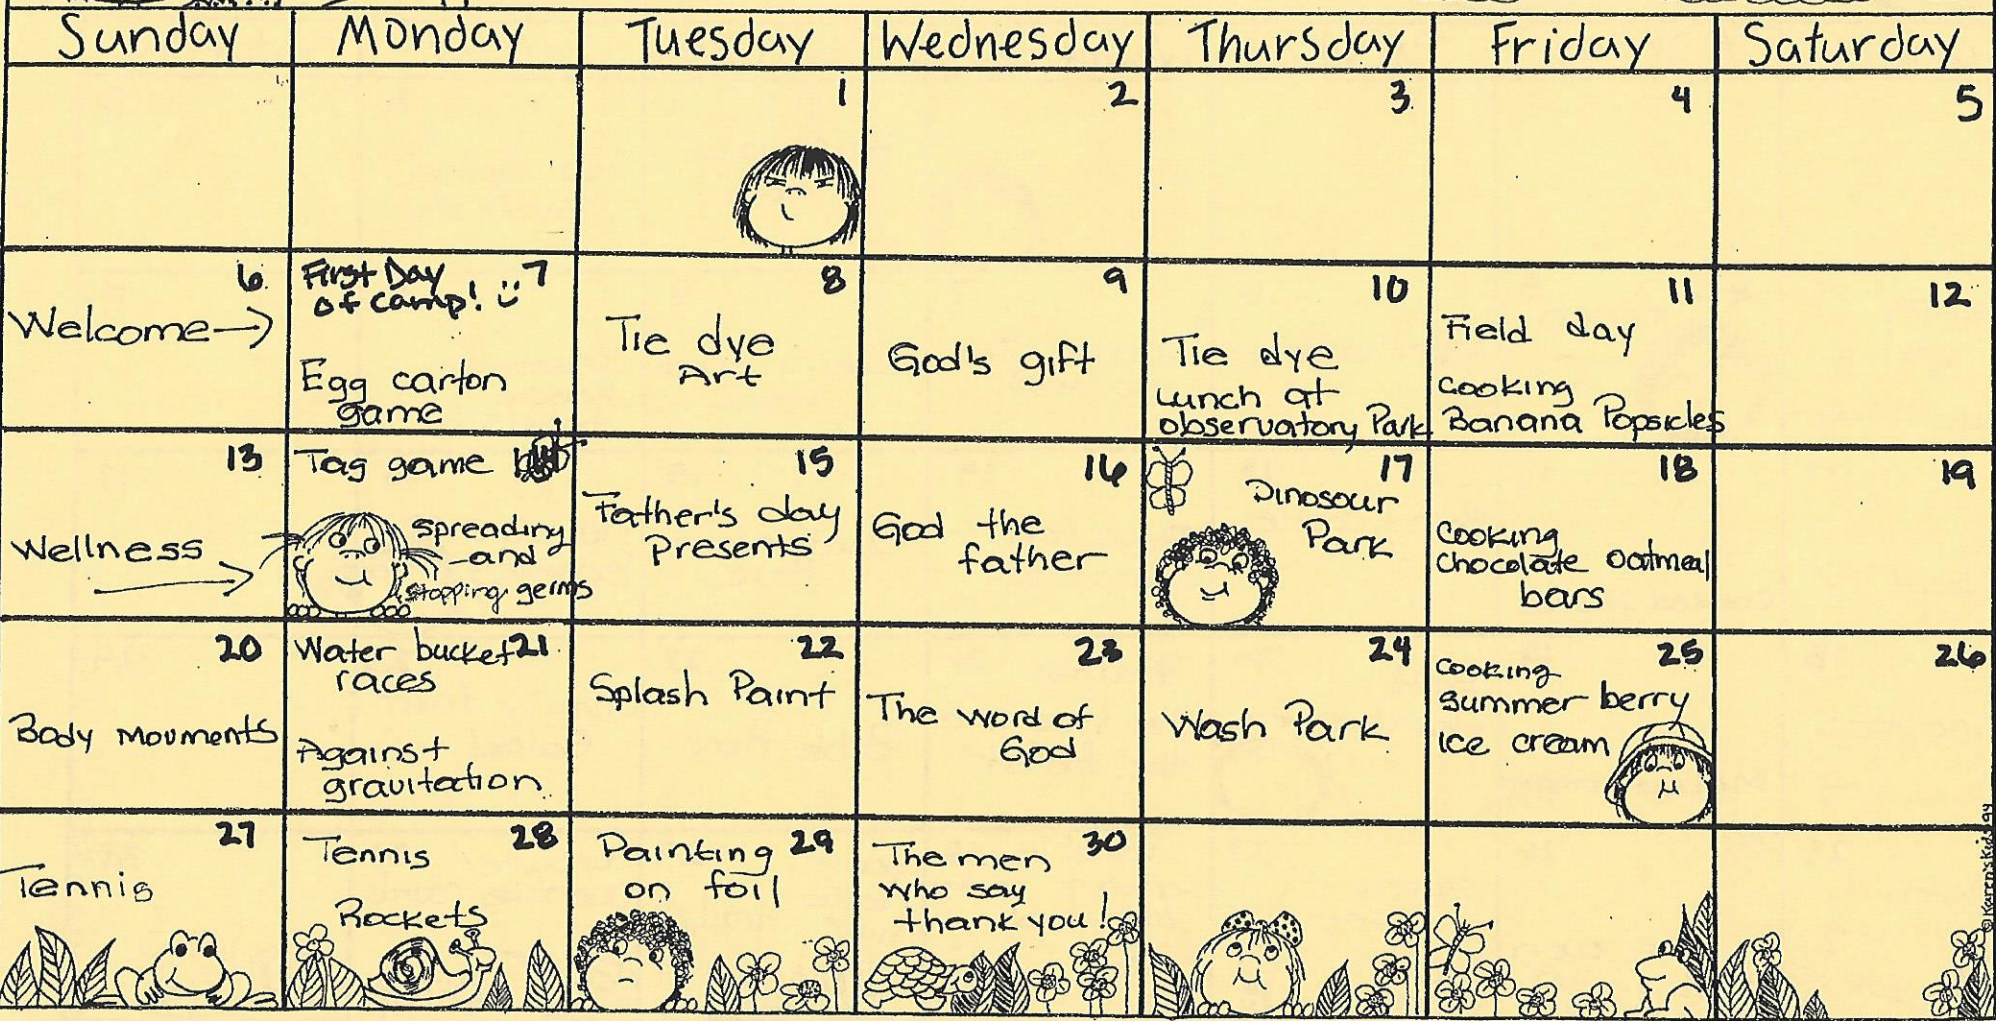 Sunday Monday Tuesday Wednesday Thursday Friday Saturday
1 2 3 4 5
6
Welcome→
First Day 7
of camp! ü
Egg carton
game
8
Tie dye
Art
9
God's gift
10
Tie dye
Lunch at
observatory Park
11
Field day
Cooking
Banana Popsicles
12
13
Wellness
→
Tag game
Spreading
and
stopping germs
15
Father's day
Presents
16
God the
father
17
Dinosour
Park
18
Cooking
Chocolate oatmeal
bars
19
20
Body Mouments
Water bucket 21
races
Against
gravitation
22
Splash Paint
23
The word of
God
24
Wash Park
25
Cooking
Summer berry
Ice cream
26
27
Tennis
28
Tennis
Rockets
Painting 29
on foil
The men 30
who say
thank you!
© Karen's Kids 94